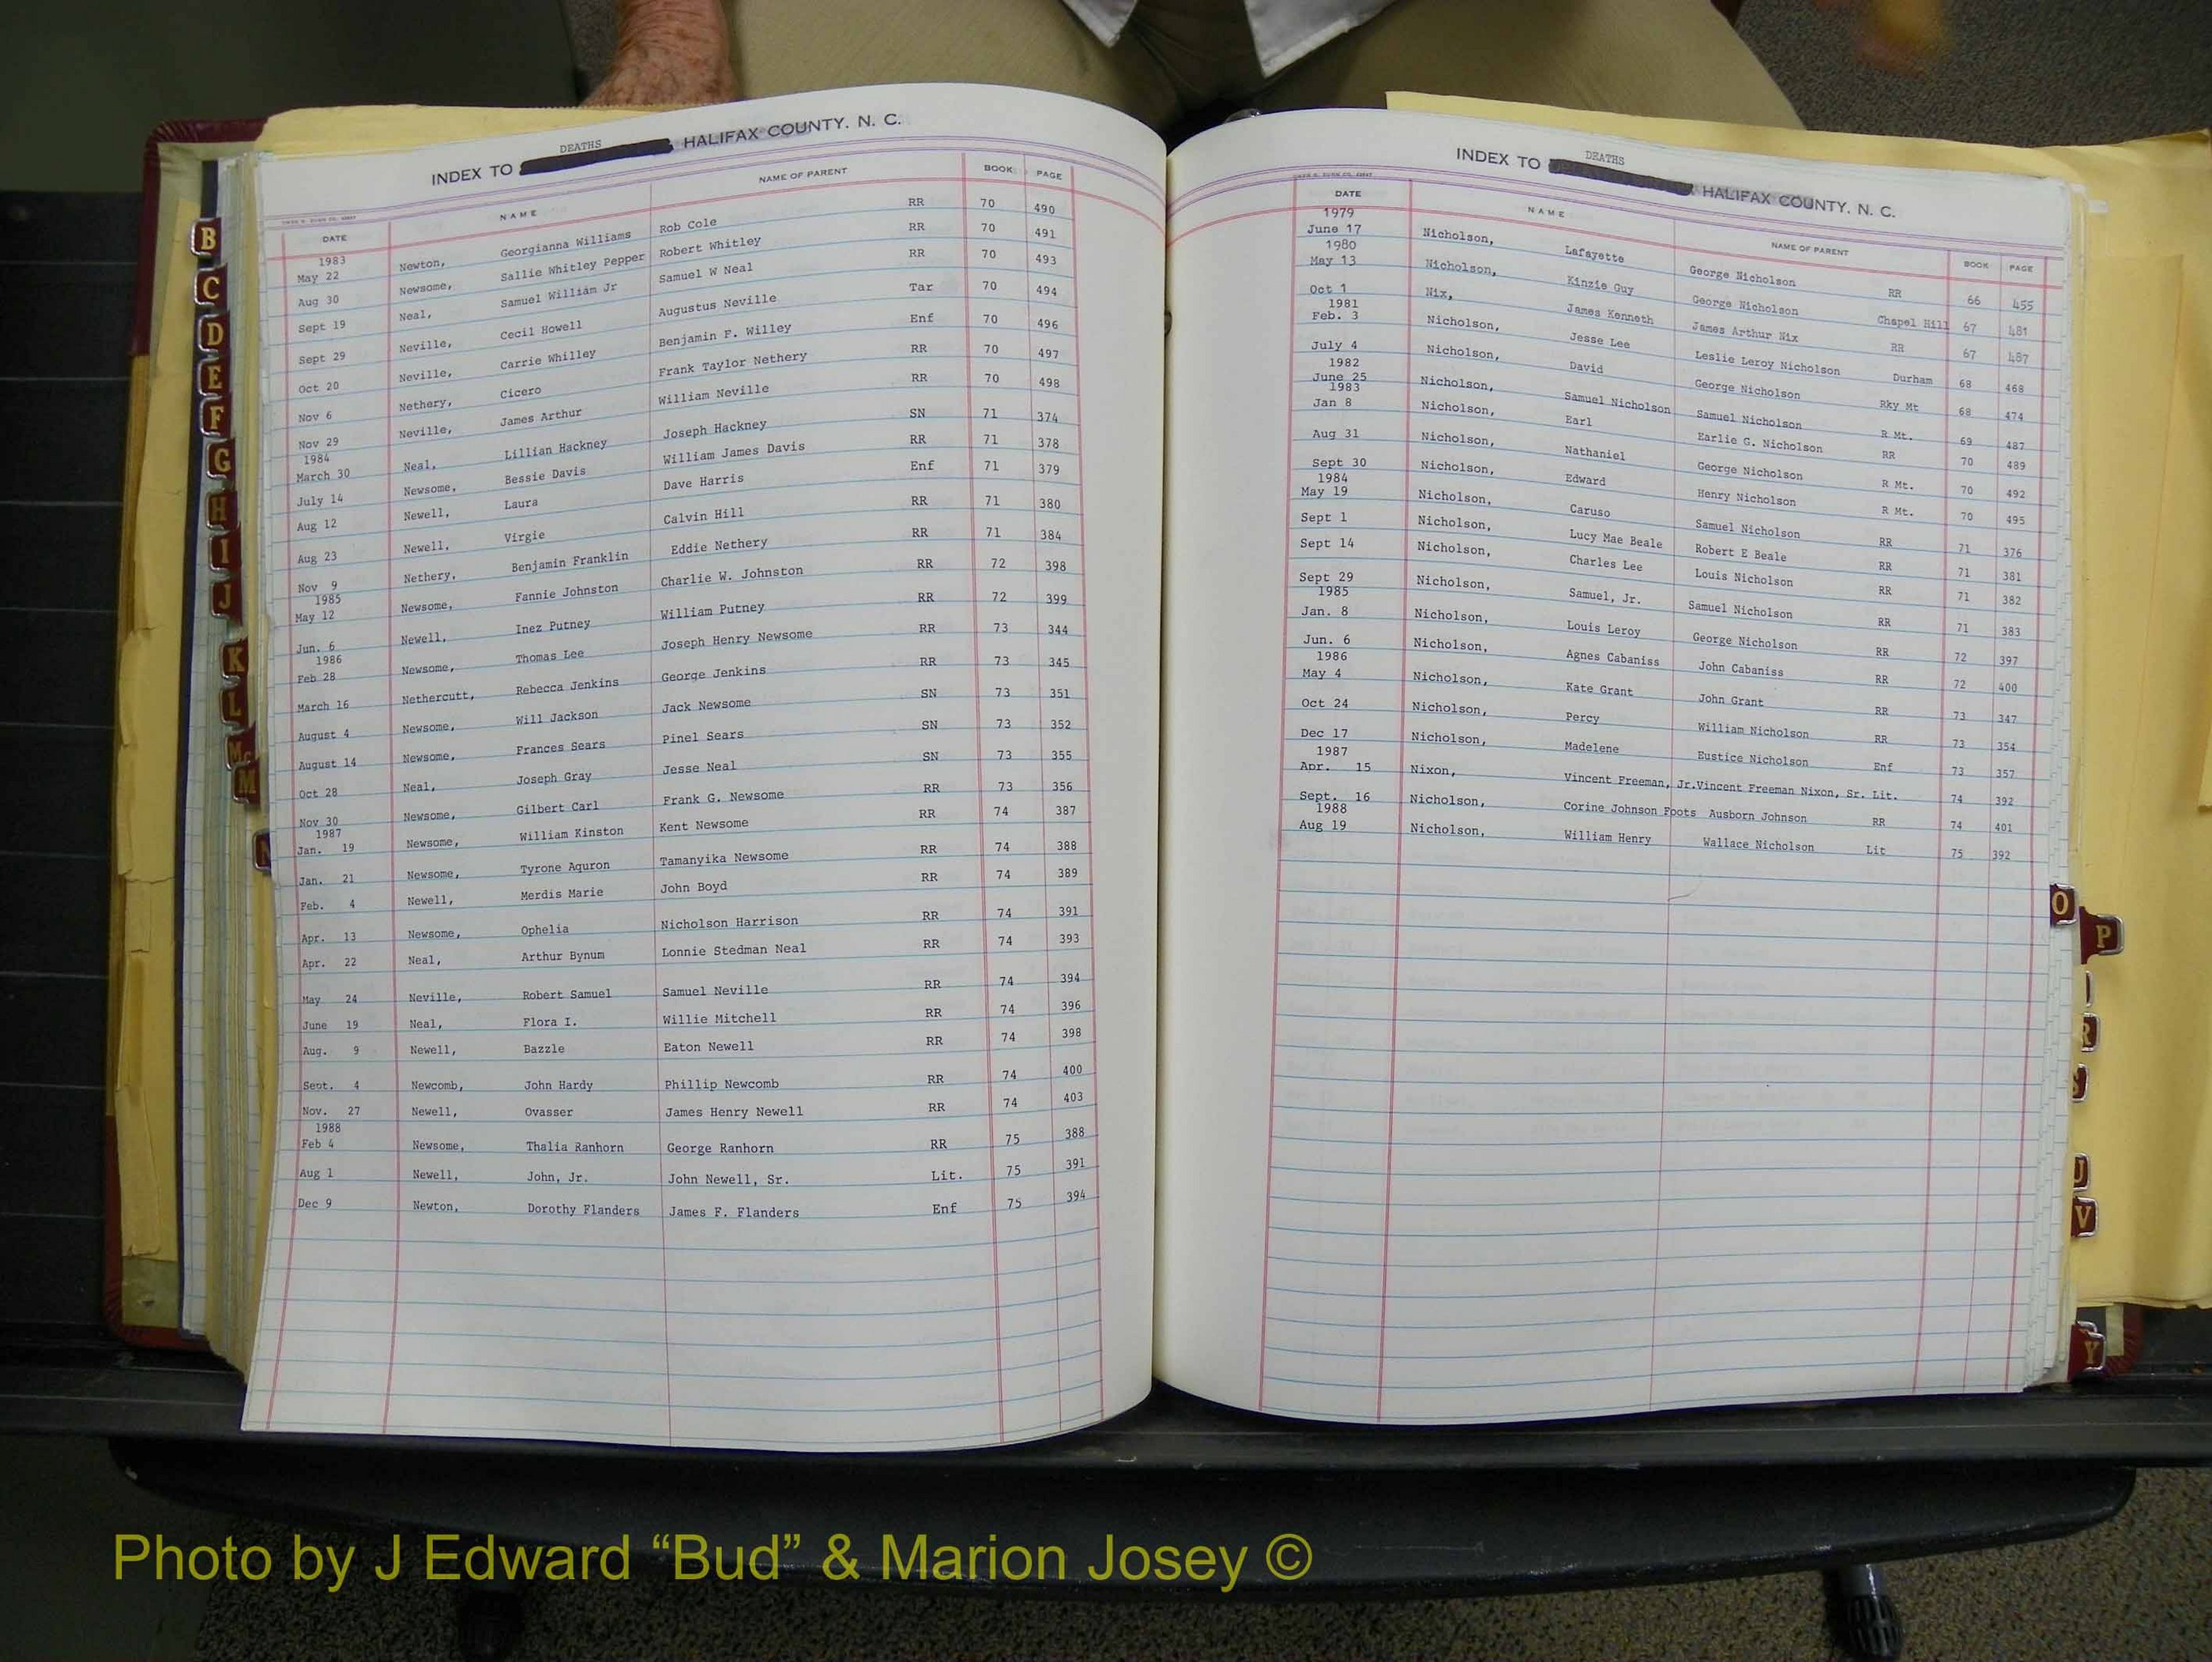 INDEX TO DEATHS HALIFAX COUNTY. N. C.
DATE NAME NAME OF PARENT BOOK PAGE
1983
May 22 Newton, Georgianna Williams Rob Cole RR 70 490
Aug 30 Newsome, Sallie Whitley Pepper Robert Whitley RR 70 491
Sept 19 Neal, Samuel William Jr Samuel W Neal RR 70 493
Sept 29 Neville, Cecil Howell Augustus Neville Tar 70 494
Oct 20 Neville, Carrie Whilley Benjamin F. Willey Enf 70 496
Nov 6 Nethery, Cicero Frank Taylor Nethery RR 70 497
Nov 29 Neville, James Arthur William Neville RR 70 498
1984
March 30 Neal, Lillian Hackney Joseph Hackney SN 71 374
July 14 Newsome, Bessie Davis William James Davis RR 71 378
Aug 12 Newell, Laura Dave Harris Enf 71 379
Aug 23 Newell, Virgie Calvin Hill RR 71 380
Nov 9 Nethery, Benjamin Franklin Eddie Nethery RR 71 384
1985
May 12 Newsome, Fannie Johnston Charlie W. Johnston RR 72 398
Jun. 6 Newell, Inez Putney William Putney RR 72 399
1986
Feb 28 Newsome, Thomas Lee Joseph Henry Newsome RR 73 344
March 16 Nethercutt, Rebecca Jenkins George Jenkins RR 73 345
August 4 Newsome, Will Jackson Jack Newsome SN 73 351
August 14 Newsome, Frances Sears Pinel Sears SN 73 352
Oct 28 Neal, Joseph Gray Jesse Neal SN 73 355
Nov 30 Newsome, Gilbert Carl Frank G. Newsome RR 73 356
1987
Jan. 19 Newsome, William Kinston Kent Newsome RR 74 387
Jan. 21 Newsome, Tyrone Aquron Tamanyika Newsome RR 74 388
Feb. 4 Newell, Merdis Marie John Boyd RR 74 389
Apr. 13 Newsome, Ophelia Nicholson Harrison RR 74 391
Apr. 22 Neal, Arthur Bynum Lonnie Stedman Neal RR 74 393
May 24 Neville, Robert Samuel Samuel Neville RR 74 394
June 19 Neal, Flora I. Willie Mitchell RR 74 396
Aug. 9 Newell, Bazzle Eaton Newell RR 74 398
Sept. 4 Newcomb, John Hardy Phillip Newcomb RR 74 400
Nov. 27 Newell, Ovasser James Henry Newell RR 74 403
1988
Feb 4 Newsome, Thalia Ranhorn George Ranhorn RR 75 388
Aug 1 Newell, John, Jr. John Newell, Sr. Lit. 75 391
Dec 9 Newton, Dorothy Flanders James F. Flanders Enf 75 394
INDEX TO DEATHS HALIFAX COUNTY. N. C.
DATE NAME NAME OF PARENT BOOK PAGE
1979
June 17 Nicholson, Lafayette George Nicholson RR 66 455
1980
May 13 Nicholson, Kinzie Guy George Nicholson Chapel Hill 67 481
Oct 1 Nix, James Kenneth James Arthur Nix RR 67 487
1981
Feb. 3 Nicholson, Jesse Lee Leslie Leroy Nicholson Durham 68 468
July 4 Nicholson, David George Nicholson Rky Mt 68 474
1982
June 25 Nicholson, Samuel Nicholson Samuel Nicholson R Mt. 69 487
1983
Jan 8 Nicholson, Earl Earlie G. Nicholson RR 70 489
Aug 31 Nicholson, Nathaniel George Nicholson R Mt. 70 492
Sept 30 Nicholson, Edward Henry Nicholson R Mt. 70 495
1984
May 19 Nicholson, Caruso Samuel Nicholson RR 71 376
Sept 1 Nicholson, Lucy Mae Beale Robert E Beale RR 71 381
Sept 14 Nicholson, Charles Lee Louis Nicholson RR 71 382
Sept 29 Nicholson, Samuel, Jr. Samuel Nicholson RR 71 383
1985
Jan. 8 Nicholson, Louis Leroy George Nicholson RR 72 397
Jun. 6 Nicholson, Agnes Cabaniss John Cabaniss RR 72 400
1986
May 4 Nicholson, Kate Grant John Grant RR 73 347
Oct 24 Nicholson, Percy William Nicholson RR 73 354
Dec 17 Nicholson, Madelene Eustice Nicholson Enf 73 357
1987
Apr. 15 Nixon, Vincent Freeman, Jr.Vincent Freeman Nixon, Sr. Lit. 74 392
Sept. 16 Nicholson, Corine Johnson Foots Ausborn Johnson RR 74 401
1988
Aug 19 Nicholson, William Henry Wallace Nicholson Lit 75 392
B
C
D
E
F
G
H
I
J
K
L
Mc
M
O
P
R
S
U
V
Y
Photo by J Edward “Bud” & Marion Josey ©